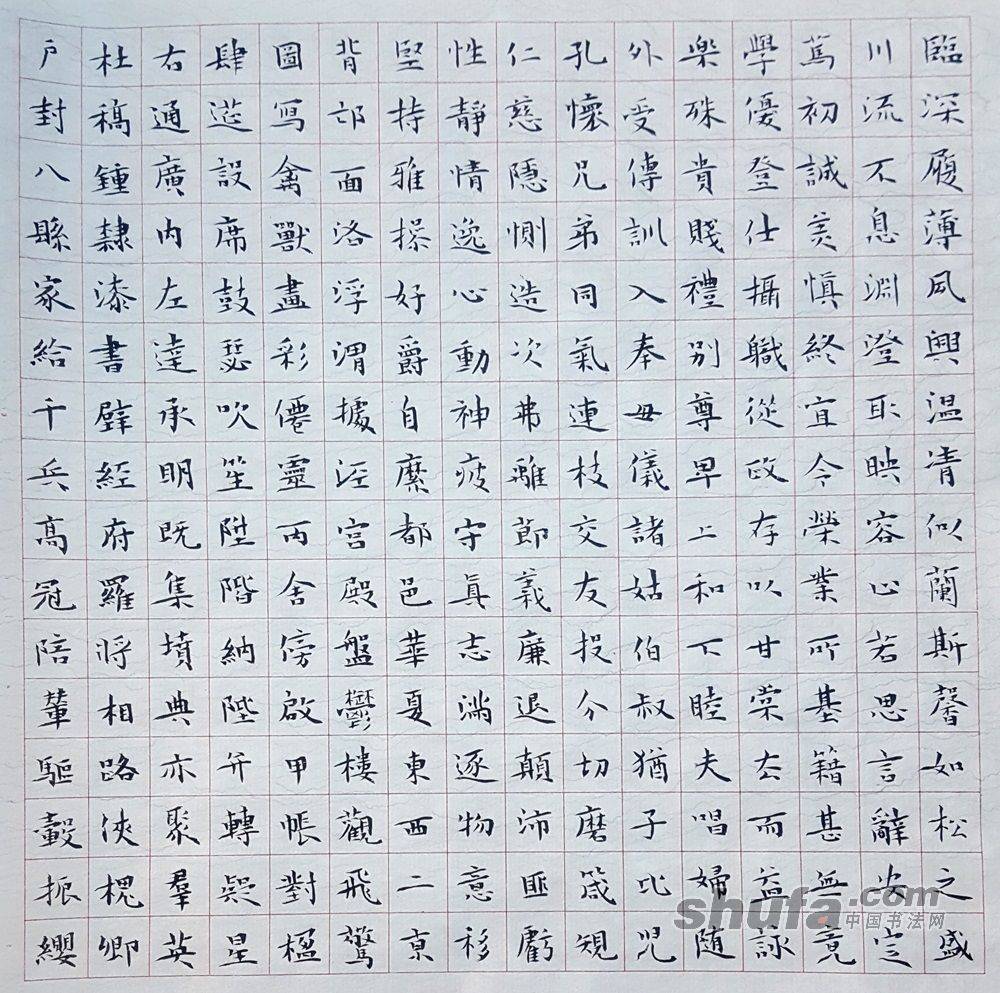 臨深履薄夙興温凊似蘭斯馨如松之盛
川流不息淵澄取映容止若思言辭安定
篤初誠美慎終宜令榮業所基籍甚無竟
學優登仕攝職從政存以甘棠去而益詠
樂殊貴賤禮別尊卑上和下睦夫唱婦随
外受傅訓入奉母儀諸姑伯叔猶子比兒
孔懷兄弟同氣連枝交友投分切磨箴規
仁慈隱惻造次弗離節義廉退顛沛匪虧
性靜情逸心動神疲守真志滿逐物意移
堅持雅操好爵自縻都邑華夏東西二京
背邙面洛浮渭據涇宮殿盤鬱樓觀飛驚
圖寫禽獸畫彩僊靈丙舍傍啟甲帳對楹
肆筵設席鼓瑟吹笙陞階納陛弁轉疑星
右通廣內左達承明既集墳典亦聚羣英
杜稿鍾隸漆書壁經府羅將相路俠槐卿
戶封八縣家給千兵高冠陪輦驅轂振纓
shufa.com
中国书法网